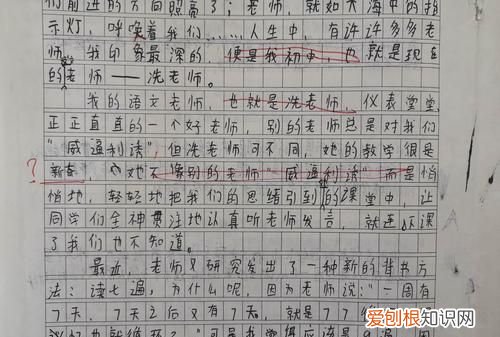 们前进的方向照亮了；老师，就如大海中的指
示灯，呼唤着我们……人生中，有许许多多老
师。我印象最深的，便是我初中，也就是现在
的老师——冼老师。
我的语文老师，也就是冼老师，仪表堂堂
正正直直的一个好老师，别的老师总是对我们
“威逼利诱”，但冼老师可不同，她的教学很是
新奇，她不像别的老师“威逼利诱”而是悄
悄地，轻轻地把我们的思绪引到的课堂中，让
同学们全神贯注地认真听老师发言，就连下课
了我们也不知道。
最近，老师又研究发出了一种新的背书方
法：读七遍，为什么呢，因为老师说：“一周有
7天，7天之后又有7天，就是77
爱刨根知识网